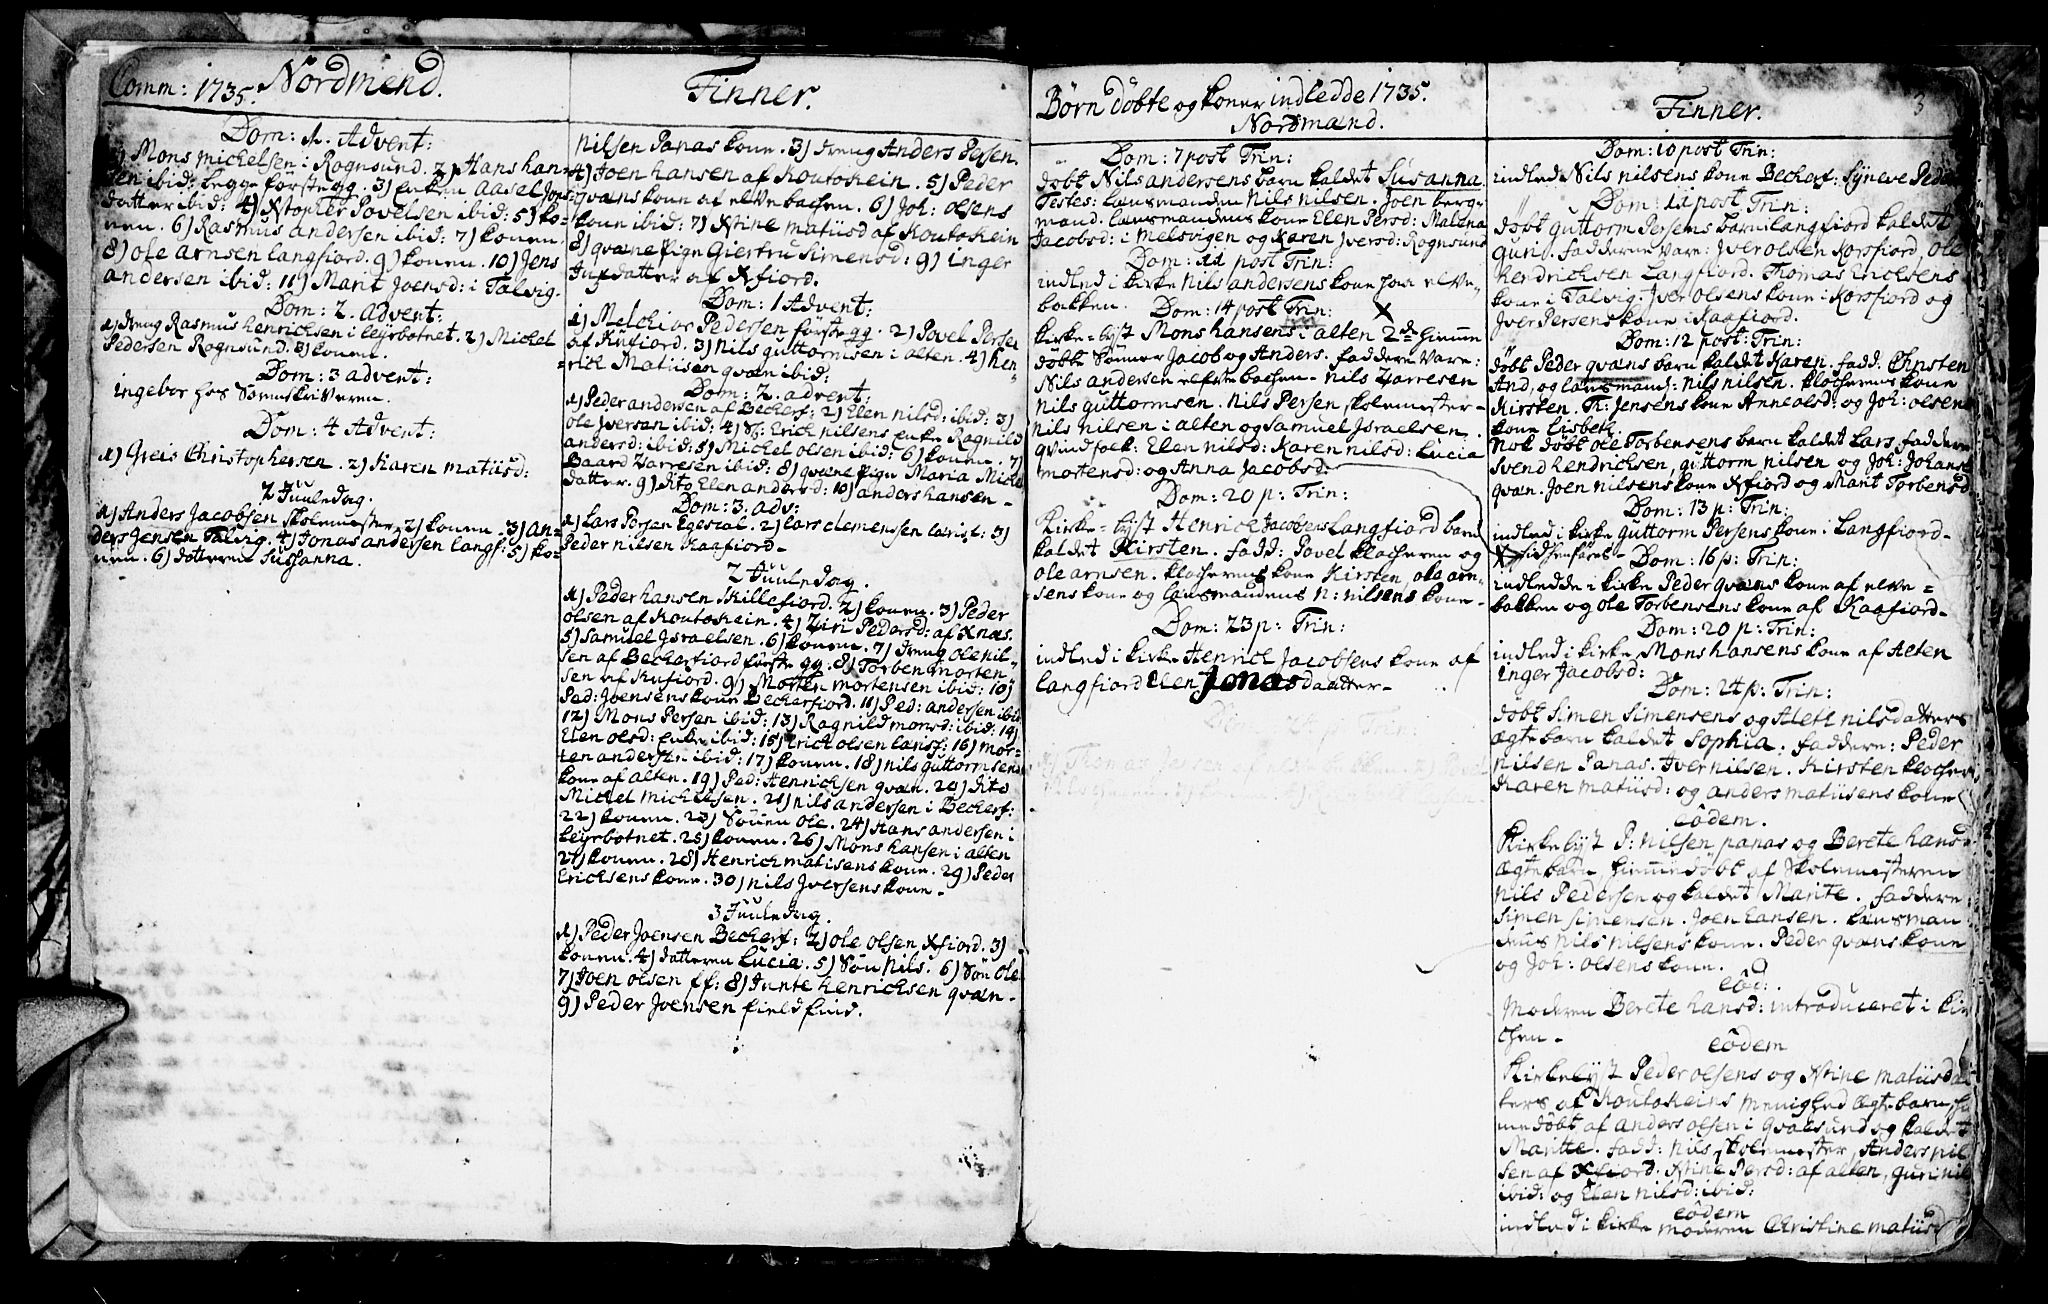 Comm: 1735. Nordmend.
Dom: 1. Advent:
1) Mons michelsen i Rognsund. 2) Hans han-
sen ibid: begge første gg. 3) enken Aasel Jons
datter ibid: 4) Xstopher Povelsen ibid: 5) ko-
nen. 6) Rasmus andersen ibid: 7) konen.
8) ole arnsen langfiord. 9) konen. 10) Jens
andersen ibid: 11) Marit Joensd: i Talvig.
Dom: 2. Advent:
1) dreng Rasmus henrichsen i leyrbotnet. 2) Michel
Pedersen Rognsund. 3) konen.
Dom: 3 advent:
ingebor hos Sorenskriveren.
Dom: 4 Advent:
1) Greis Christophersen. 2) Karen matiisd:
2 Juuledag.
1) Anders Jacobsen skolemester. 2) konen. 3) an-
ders Jensen Talvig. 4) Jonas andersen langf: 5) ko-
nen. 6) datteren Sussanna.
Finner.
nilsen Panas kone. 3) dreng Anders Persen.
4) Joen hansen af Koutokein. 5) Peder
qvæns kone af elvebachen. 6) Joh: olsens
kone ibid: 7) Xstine matiisd af Koutokein
8) qvæne pige Giertru Simensd: 9) inger
datter af Xfiord.
Dom: 1 Advent:
1) Melchior Pedersen første gg. 2) Povel Perse
af Kufiord. 3) nils guttormsen i alten. 4) hen-
rich Matiisen qvæn ibid:
Dom: 2. advent:
1) Peder andersen af Beckerf: 2) Elen nilsd: ibid: 3)
ole iversen ibid: 4) S: Erich nilsens enke Ragnild
andersd: ibid: 5) Michel olsen ibid: 6) konen. 7)
Baard Zarresen ibid: 8) qvæne pige Maria Michels
datter. 9) dito Elen andersd: 10) anders hansen -
Dom: 3. adv:
1) Lars Persen 2) lars clemensen 3)
Peder nilsen Kaafiord -
2 Juuledag.
1) Peder hansen Skillefiord. 2) konen. 3) Peder
olsen af Koutokein. 4) Ziri Pedersd: af Xnæs.
5) Samuel Jsraelsen. 6) konen. 7) dreng ole nil-
sen af Beckerfiord første gg. 8) Torben morten-
sen af Kufiord. 9) Morten mortensen ibid: 10)
Ped: Joensens kone Beckerfiord. 11) Ped: andersen ibid
12) Mons Persen ibid: 13) Ragnild monsd: ibid: 14)
Elen olsd: enke ibid: 15) Erich olsen 16) mor-
ten andersen ibid: 17) konen. 18) nils guttormsens
kone af alten. 19) Ped: Henrichsen qvæn. 20) dito
Michel michelsen. 21) nils andersen i Beckerf:
22) konen. 23) Sønen ole. 24) Hans andersen i
leyrbotnet. 25) konen. 26) Mons hansen i alten
27) konen. 28) Henrich matisens kone. 29) Peder
Erichsens kone. 30) nils Jversens kone -
3 Juuledag.
1) Peder Joensen Beckerf: 2) ole olsen Xfiord. 3)
konen. 4) datteren Lucia. 5) Søn Nils. 6) Søn ole
7) Joen olsen ff: 8) Junte henrichsen qvæn -
9) Peder Joensen fieldfind.
Børn døbte og koner indledde 1735.
Nordmænd.
Dom: 7 post Trin:
døbt Nils andersens barn kaldet Susanna.
Testes: lænsmanden Nils nilsen. Joen berg-
mand. lænsmandens kone Elen Persd: Malena
Jacobsd: i Melsvigen og Karen Jversd: Rognsund
Dom: 11 post Trin:
indled i kirke Nils andersens kone paa elve-
bakken. Dom: 14 post Trin: X
kirke-lyst Mons hansens i alten 2de hiemme
døbte Sønner Jacob og Anders. faddere vare:
Nils andersen elvebachen - nils Zarresen
Nils guttormsen. Nils Persen skolemester -
Nils nilsen i alten og Samuel Jsraelsen.
qvindfolk: Elen nilsd: Karen nilsd: Lucia
mortensd: og Anna Jacobsd:
Dom: 20 p: Trin:
Kirke-lyst Henrich Jacobsens Langfiord barn
kaldet Kirsten. fadd: Povel klocheren og
ole arnsen. klocherens kone Kirsten, ole arn-
sens kone og lænsmandens N: nilsens kone -
Dom: 23 p: Trin:
indled i kirke Henrich Jacobsens kone af
langfiord Elen Jonasdaatter -
Finner. 3
Dom: 10 post Trin:
indled Nils nilsens kone Beckerf: Syneve Peders
Dom: 11 post Trin:
døbt guttorm Persens barn i langfiord kaldet
Guri. fadderne vare: Jver olsen Korsfiord, ole
hendrichsen Langfiord. Thomas
kone i Talvig. Jver olsens kone i Korsfiord og
Jver Persens kone i Kaafiord.
Dom: 12 post: Trin:
døbt Peder qvæns barn kaldet Karen. fadd: Christen
And, og lænsmand: nils nilsen. klocherens kone
Kirsten. Th: Jensens kone Anne olsd: og Joh: olsens
kone Lisbeth.
Nok døbt ole Torbensens barn kaldet Lars. faddere
Svend hendrichsen, guttorm nilsen og Joh: Johans
qvæn. Joen nilsens kone Xfiord og Marit Torbensd
Dom: 13 p: Trin:
indled i kirke guttorm Persens kone i Langfiord -
X Dom: 16 p: Trin:
indledde i kirke Peder qvæns kone af elve-
bakken og ole Torbensens kone af Kaafiord -
Dom: 20 p: Trin:
indled i kirke Mons hansens kone af Alten
inger Jacobsd:
Dom: 24 p: Trin:
døbt Simen Simensens og Aleth nilsdatters
ægte barn kaldet Sophia. faddere: Peder
nilsen Panas. Jver nilsen. Kirsten klocher
Karen matiisd: og anders matiisens kone
eodem.
Kirkelyst P: Nilsen panas og Berete hansd
ægte barn, hiemmedøbt af Skolemesteren
Nils Pedersen og kaldet Marite. faddere:
Simen Simensen. Joen hansen. lænsman
dens Nils nilsens kone. Peder qvæns kone
og Joh: olsens kone.
eod:
Moderen Berete hansd: introduceret i kir
chen -
eodem
Kirkelyst Peder olsens og Xstine matiisdat
ters af Koutokeins menighed ægte barn, hie
medøbt af anders olsen i qvalsund og kaldet
Maritte. fadd: Nils Skolemester, Anders nil
sen af Xfiord. Xstine Persd: af alten, guri nils
ibid: og Elen nilsd: ibid:
eodem
indled i kirke moderen Christine matiisd